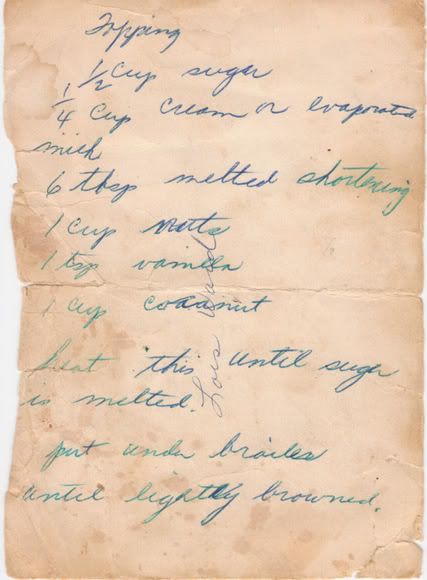 Topping
1/2 cup sugar
1/4 cup cream or evaporated
milk
6 tbsp melted shortening
1 cup nuts
1 tsp vanilla
1 cup cocoanut
heat this until sugar
is melted.
put under broiler
until lightly browned.
Lois Ward